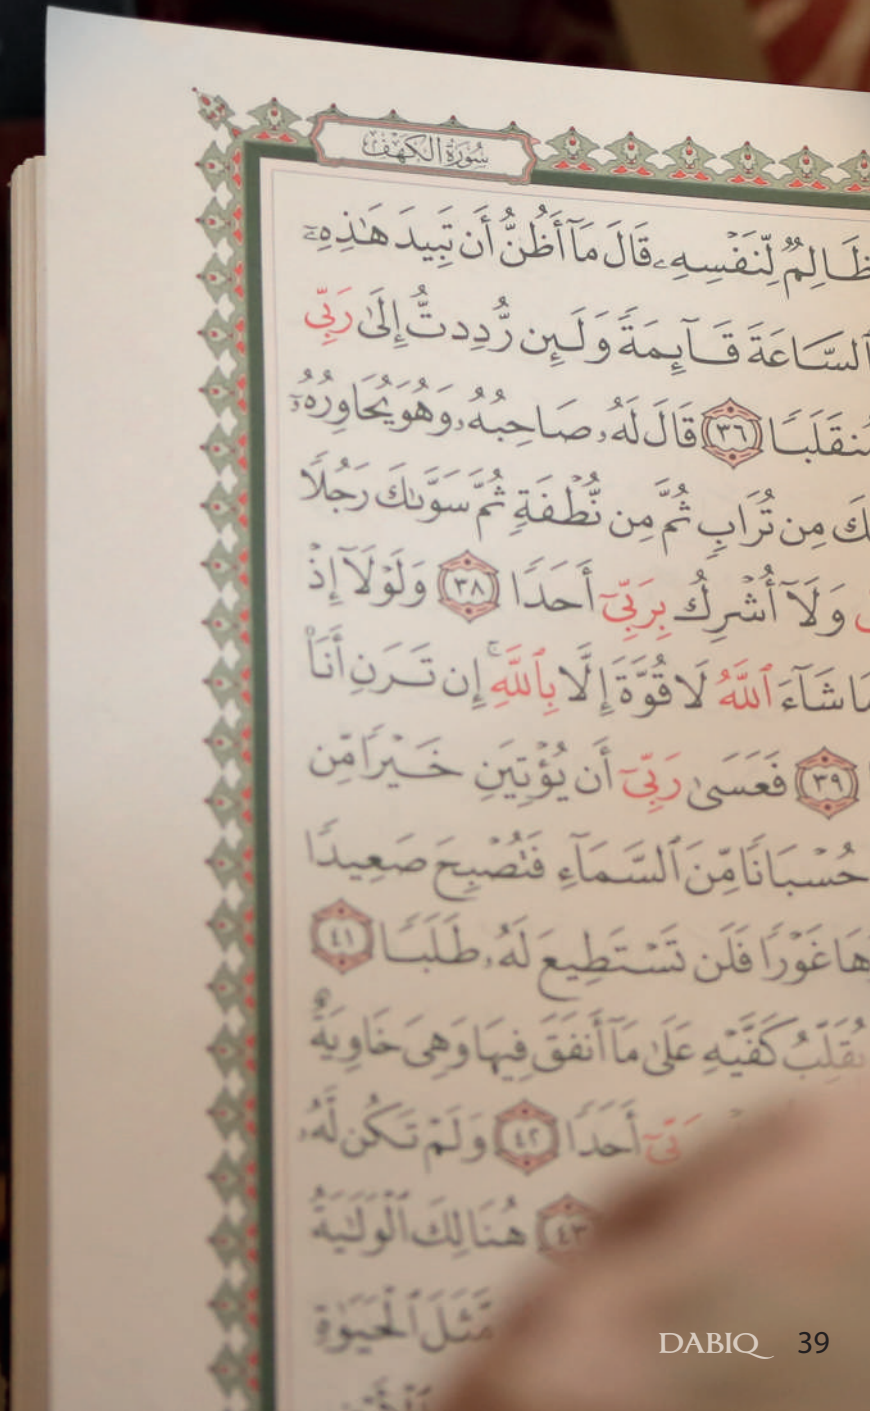 سُورَةُ الكَهْفِ
ظَالِمٌ لِّنَفْسِهِۦ قَالَ مَآ أَظُنُّ أَن تَبِيدَ هَٰذِهِۦٓ
ٱلسَّاعَةَ قَآئِمَةً وَلَئِن رُّدِدتُّ إِلَىٰ رَبِّى
مُنقَلَبًا ٣٦ قَالَ لَهُۥ صَاحِبُهُۥ وَهُوَ يُحَاوِرُهُۥٓ
مِن تُرَابٍ ثُمَّ مِن نُّطْفَةٍ ثُمَّ سَوَّىٰكَ رَجُلًا
وَلَآ أُشْرِكُ بِرَبِّىٓ أَحَدًا ٣٨ وَلَوْلَآ إِذْ
مَا شَآءَ ٱللَّهُ لَا قُوَّةَ إِلَّا بِٱللَّهِ ۚ إِن تَرَنِ أَنَا۠
٣٩ فَعَسَىٰ رَبِّىٓ أَن يُؤْتِيَنِ خَيْرًا مِّن
حُسْبَانًا مِّنَ ٱلسَّمَآءِ فَتُصْبِحَ صَعِيدًا
غَوْرًا فَلَن تَسْتَطِيعَ لَهُۥ طَلَبًا ٤١
يُقَلِّبُ كَفَّيْهِ عَلَىٰ مَآ أَنفَقَ فِيهَا وَهِىَ خَاوِيَةٌ
أَحَدًا ٤٢ وَلَمْ تَكُن لَّهُۥ
٤٣ هُنَالِكَ ٱلْوَلَٰيَةُ
مَّثَلَ ٱلْحَيَوٰةِ
DABIQ 39